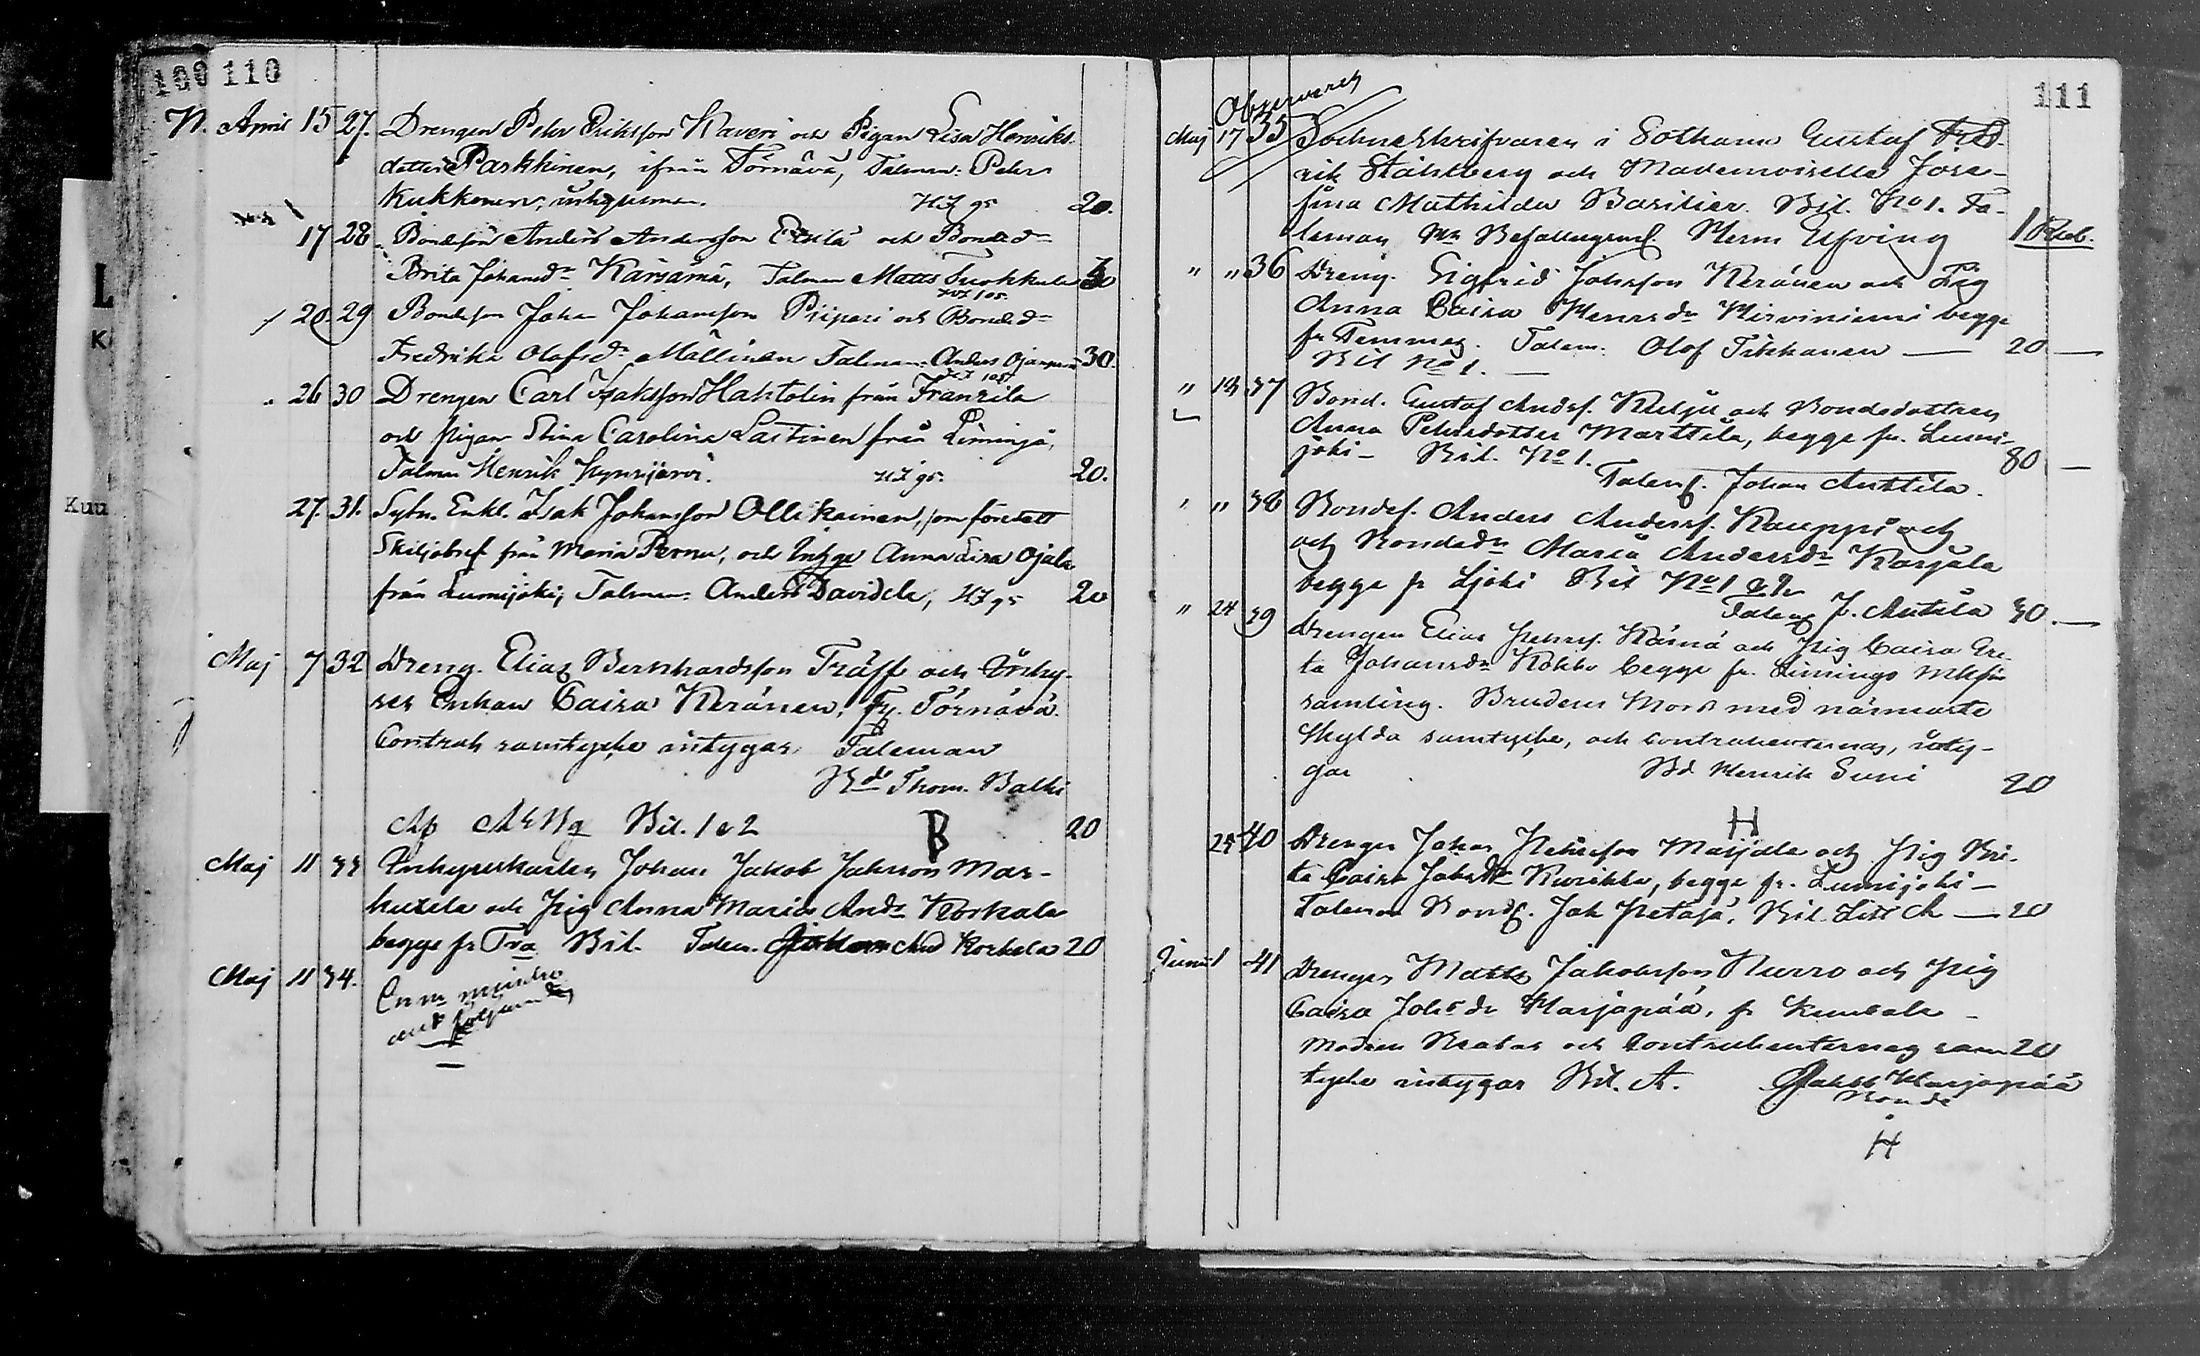 100 110
N. April 15 27. Drengen Pehr Eriksson Kaveri och Pigan Lisa Henriks-
dotter Parkkinen, ifrån Törnävä, Talman: Pehr
Kukkonen, inhysesman. 20.
17 28 Bondeson Anders Andersson och Bonded:r
Brita Johansd:r Kärsämä, Talman Matts Suokkula
20. 29 Bondeson Johan Johansson Piipari och Bonded:r
Fredrika Olofsd:r Mällinen Talman: Anders Ojanperä 30.
26 30 Drengen Carl Isaksson Hahtolin från Franzila
och pigan Stina Carolina Lastinen från Limingo,
Talman Henrik Kynsijervi. 20.
27. 31. Sytn. Enkl. Isak Johansson Ollikainen, som företett
Skiljobref från Maria Perna, och Inhys Anna Lisa Ojala
från Lumijoki, Talman: Anders Davidila, 20
Maj 7 32 Dreng. Elias Bernhardsson Träff och Inhy-
ses Enkan Caisa Keränen, fr. Törnävä.
Contrah samtycke intygar, Taleman
Thom. Balki
Bil. 1 o 2 B 20
Maj 11 33 Inhyseskarlen Johan Jakob Jahnsson Mar-
kuxela och Pig Anna Maria And:r Korkala
begge fr Tvä Bil. Talem. And Korkala 20
Maj 11 34.
L
K
Kuu
111
Observeras
Maj 17 35 Sockneskrifvaren i Sotkamo Gustaf Fred-
rik Ståhlberg och Mademoiselle Jose-
fina Mathilda Basilier. Bil. No 1. Ta-
leman Befallngsm. Herm Elfving 1 Rub.
" " 36 Dreng. Sigfrid Johsson Keränen och Pig
Anna Caisa Henrsd:r Hirviniemi begge
fr Temmes. Talem: Olof Tikkanen — 20 —
Bil No 1. —
" 18 37 Bond. Gustaf Andsf. Kulju och Bondedottren
Anna Pehrsdotter Marttila, begge fr. Lumi-
joki - Bil. No 1. 80 —
Talem. Johan Anttila.
" " 38 Bondes. Anders Anderss. Kauppi och
och Bonded:r Maria Andersd:r Karjala
begge fr Ljoki Bil No 1 & 2
Talem J. Anttila 30. —
" 24 39 Drengen Elias Pehrss. Kärnä och Pig Caisa Gre-
ta Johansd:r Kokko begge fr. Limingo Mkför
samling. Brudens Mors med närmaste
Skylda samtycke, och contrahenternas, inty-
gar Bd Henrik Suni 20
H
24 40 Drengen Johan Pehrsson Marjala och Pig Bri-
ta Caisa Johsd:r Kurikka, begge fr. Lumijoki -
Taleman Bond. Joh Petäjä, Bil. Litt A — 20
Junii 1 41 Drengen Matts Jakobsson Kurro och Pig
Caisa Johsd:r Harjapää, fr Kumbala -
Modren Beatas och Contrahenternas sam 20
tycke intygar Bil. A. Jakob Harjapää
Bonde
H